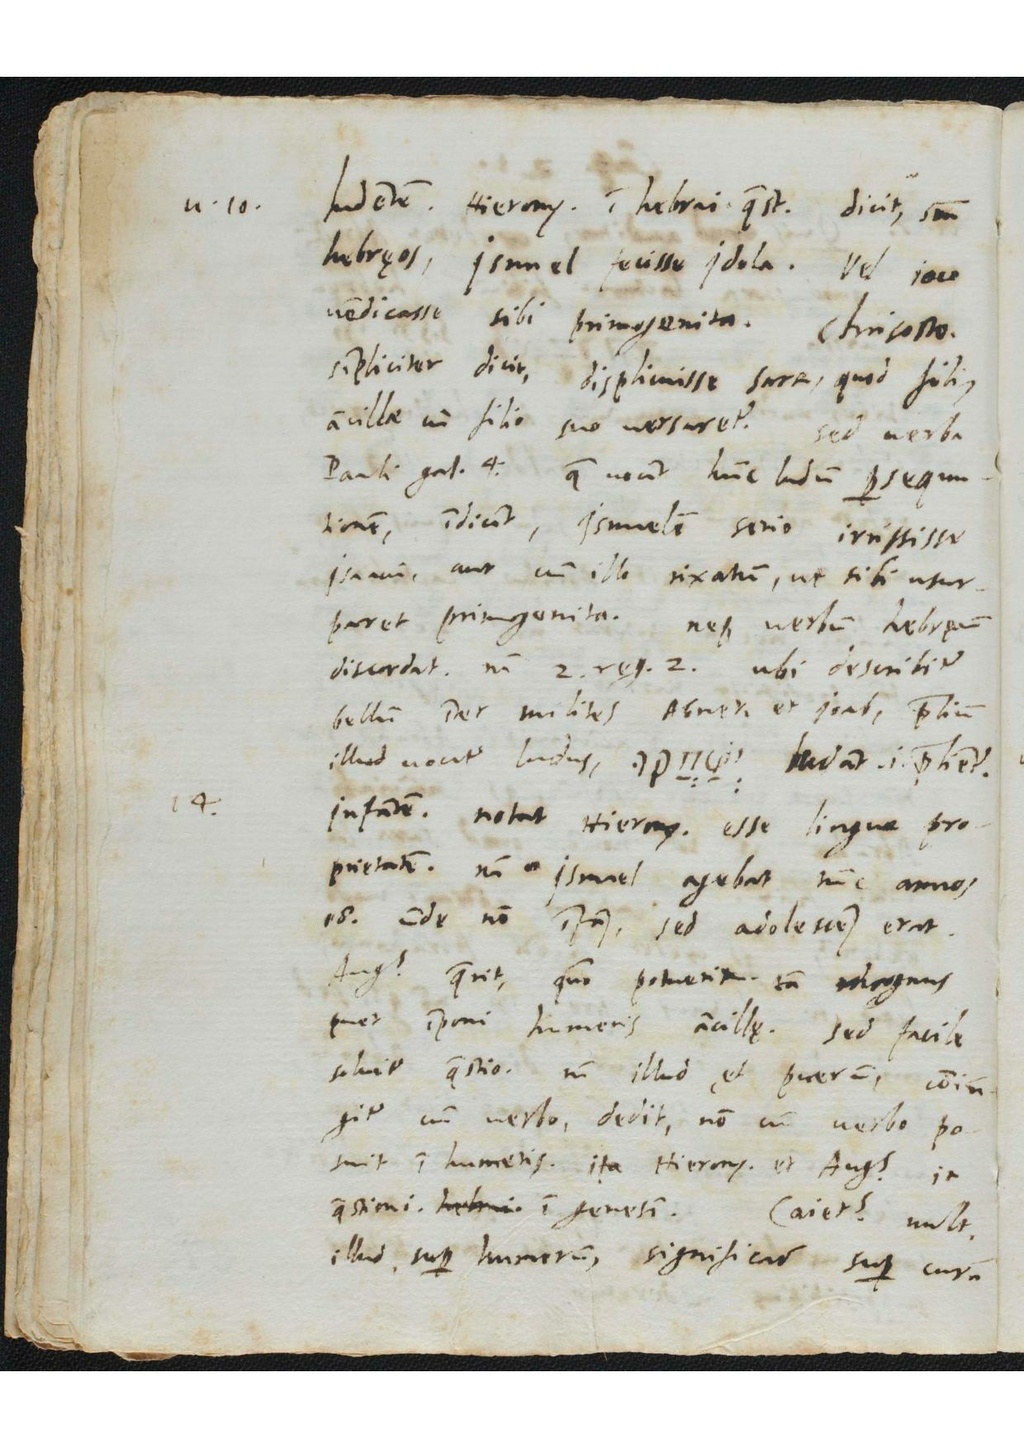 u. 10. ludētē. Hierony. ī hebrai. q̄st. dicit, scm̄
hebręos, jsmael fecisse jdola. Vel ioco
uēdicasse sibi primogenita. Chrisosto.
sīpliciter dicit, displicuisse sarę, quod fili,
ācillæ cū filio suo uersaret~. sed uerba
Pauli gal. 4. q̄ uocāt hūc ludū ꝑsequu-
tionē, īdicāt, jsmaelē serio irrisisse
isaacū, aut cū illo rixatū, ut sibi usur-
paret primogenita. neqꝫ uerbū hębręū
discordat. nā 2. reg. 2. ubi describit~
bellū īter milites Abner. et joab, p̄liū
illud uocat~ ludus, וישחקו ludāt .i. p̄liēt~.
14. jnfātē. notat Hierony. esse linguæ pro-
prietatē. nā jsmael agebat tūc annos
18. ūde nō īfās, sed adolescēs erat.
Augs. q̄rit, quō potuerit tā magnus
puer īponi humeris ācillę. sed facile
soluit~ q̄stio. nā illud et puerū, cōiū-
git~ cū uerbo, dedit, nō cū uerbo po-
suit ī humeris. ita Hierony. et Augs. in
q̄stioni. ī genesī. Caiets. uult,
illud suꝑ humerū, significad suꝑ curā